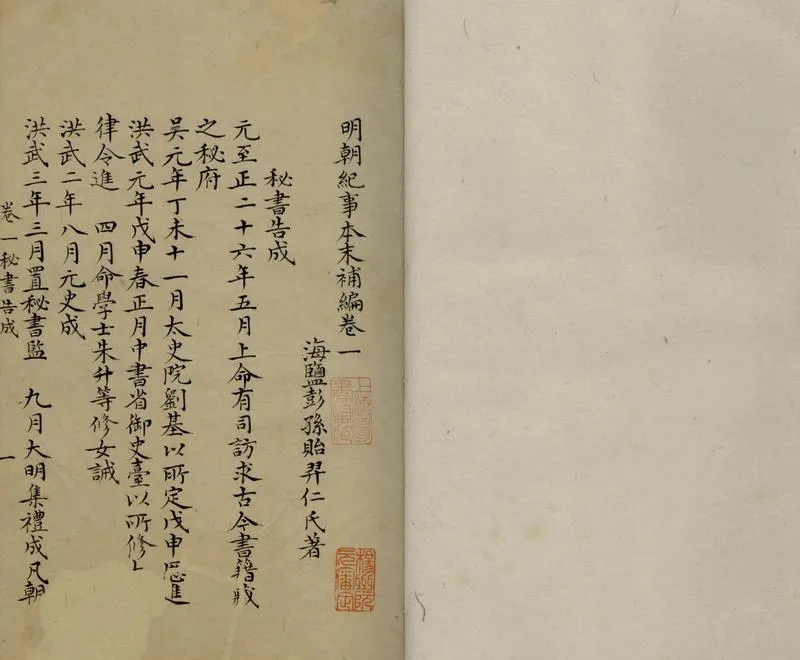 明朝紀事本末補編卷一
海鹽彭孫貽羿仁氏著
秘書告成
元至正二十六年五月上命有司訪求古今書籍
之秘府
吳元年丁未十一月太史院劉基以所定戊申進
洪武元年戊申春正月中書省御史臺以所修
律令進 四月命學士朱升等修女誡
洪武二年八月元史成
洪武三年三月置秘書監 九月大明集禮成凡朝
卷一秘書告成 一